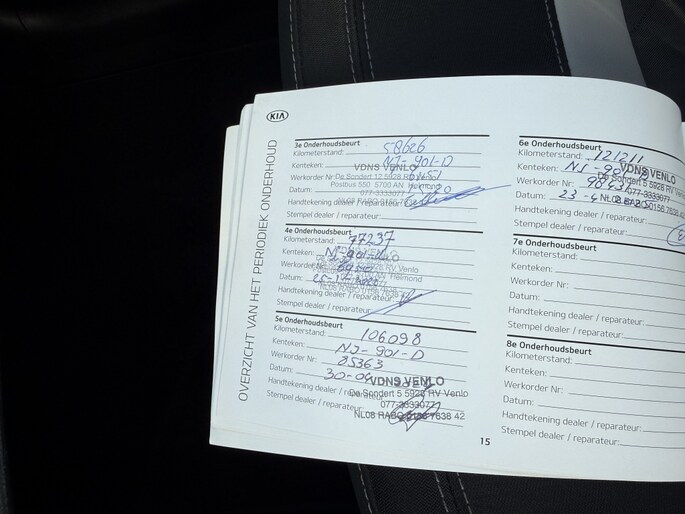 KIA
OVERZICHT VAN HET PERIODIEK ONDERHOUD
3e Onderhoudsbeurt
Kilometerstand: 58626
Kenteken: NJ-901-D
VDNS VENLO
Werkorder Nr De Sondert 12 5928 RV Venlo
Postbus 550 5700 AN Helmond
Datum: 077-3333077
Handtekening dealer / reparateur:
Stempel dealer / reparateur:
4e Onderhoudsbeurt
Kilometerstand: 77237
Kenteken: NJ-901-D
Werkorder
Datum:
Handtekening dealer / reparateur:
Stempel dealer / reparateur:
5e Onderhoudsbeurt
Kilometerstand: 106098
Kenteken: NJ-901-D
Werkorder Nr: 85363
Datum: 30-04
VDNS VENLO
Handtekening dealer / reparateur: De Sondert 5 5928 RV Venlo
077-3333077
Stempel dealer / reparateur: NL08 RABO 0156 7638 42
15
6e Onderhoudsbeurt
Kilometerstand: 121211
Kenteken: NJ-901-D
VDNS VENLO
Werkorder Nr: De Sondert 5 5928 RV Venlo
077-3333077
Datum: 23-4
Handtekening dealer / reparateur:
Stempel dealer / reparateur:
7e Onderhoudsbeurt
Kilometerstand:
Kenteken:
Werkorder Nr:
Datum:
Handtekening dealer / reparateur:
Stempel dealer / reparateur:
8e Onderhoudsbeurt
Kilometerstand:
Kenteken:
Werkorder Nr:
Datum:
Handtekening dealer / reparateur:
Stempel dealer / reparateur: